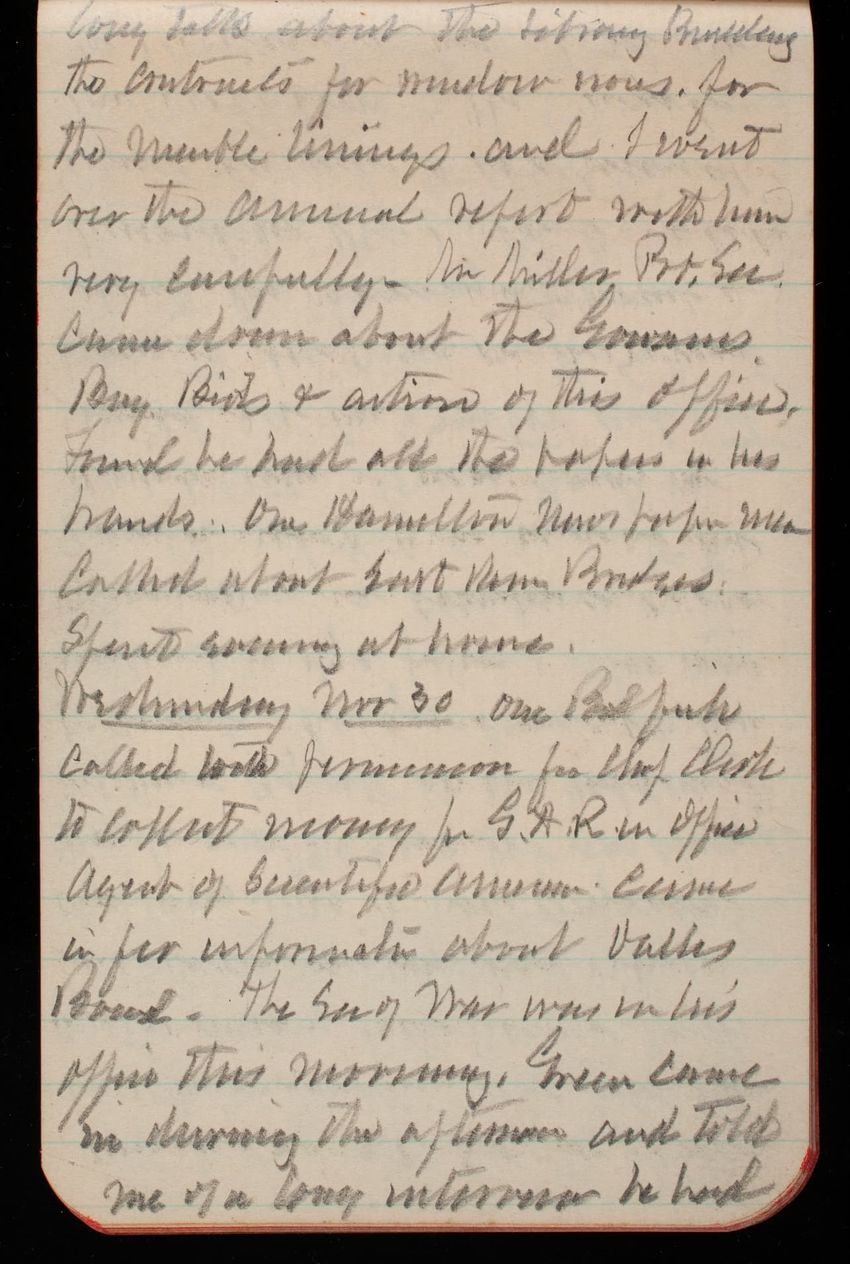 long talks about the Library Building
the contracts for window            for
the Marble linings. and I went
over the annual report with him
very carefully - Mr Miller, Pvt. Sec.
came down about the Gowanus
Bay Bids & action of this office.
Found he had all the papers in his
hands. One Hamilton newspaper man
called about East River Bridges.
Spent evening at home.
Wednesday Nov 30. One
called with permission from Chf Clerk
to collect money for G.A.R in office
Agent of Scientific American came
in for information about
Board. The Sec of War was in his
office this morning. Green came
in during the afternoon and told
me of a long interview he had